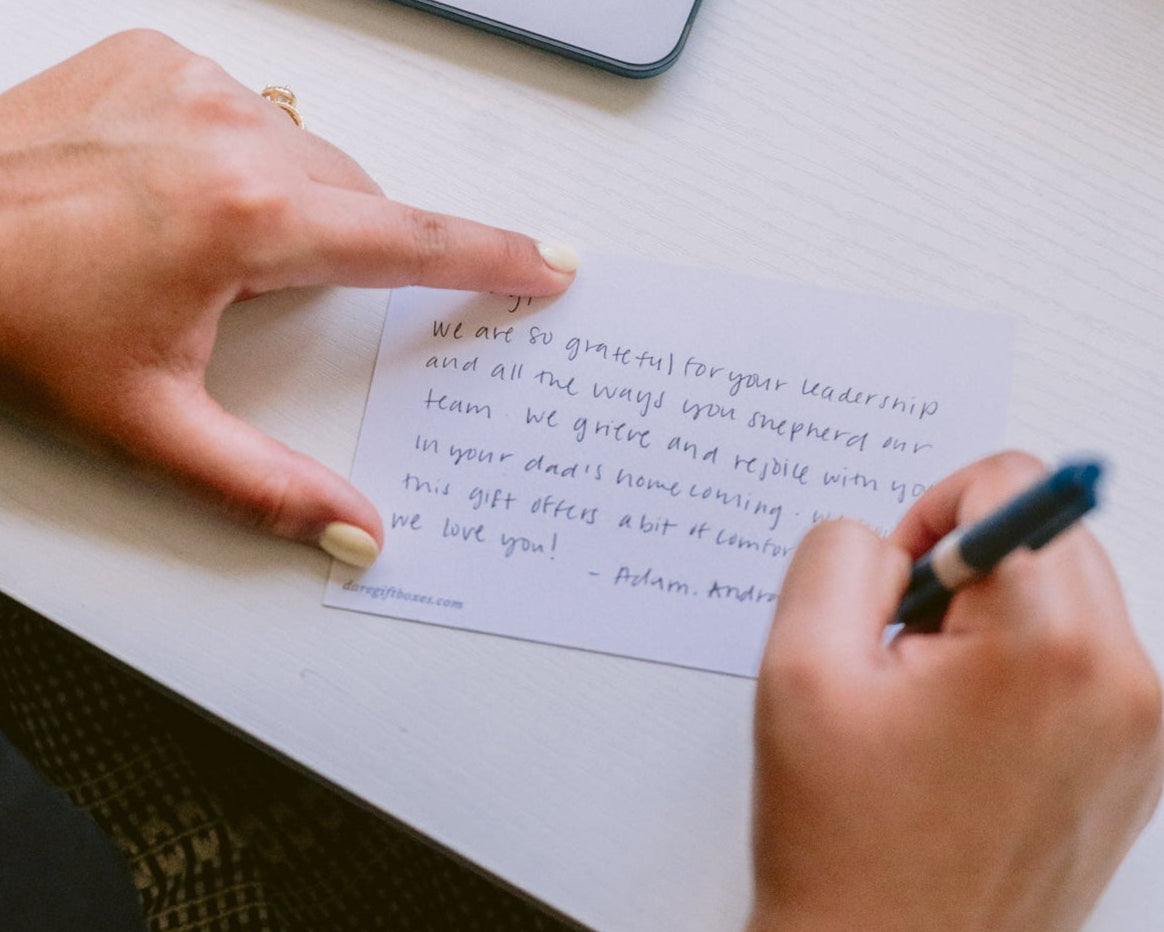 we are so grateful for your leadership
and all the ways you shepherd our
team. we grieve and rejoice with you
in your dad's homecoming.
this gift offers a bit of comfor
we love you!
- Adam. Andre
daregiftboxes.com